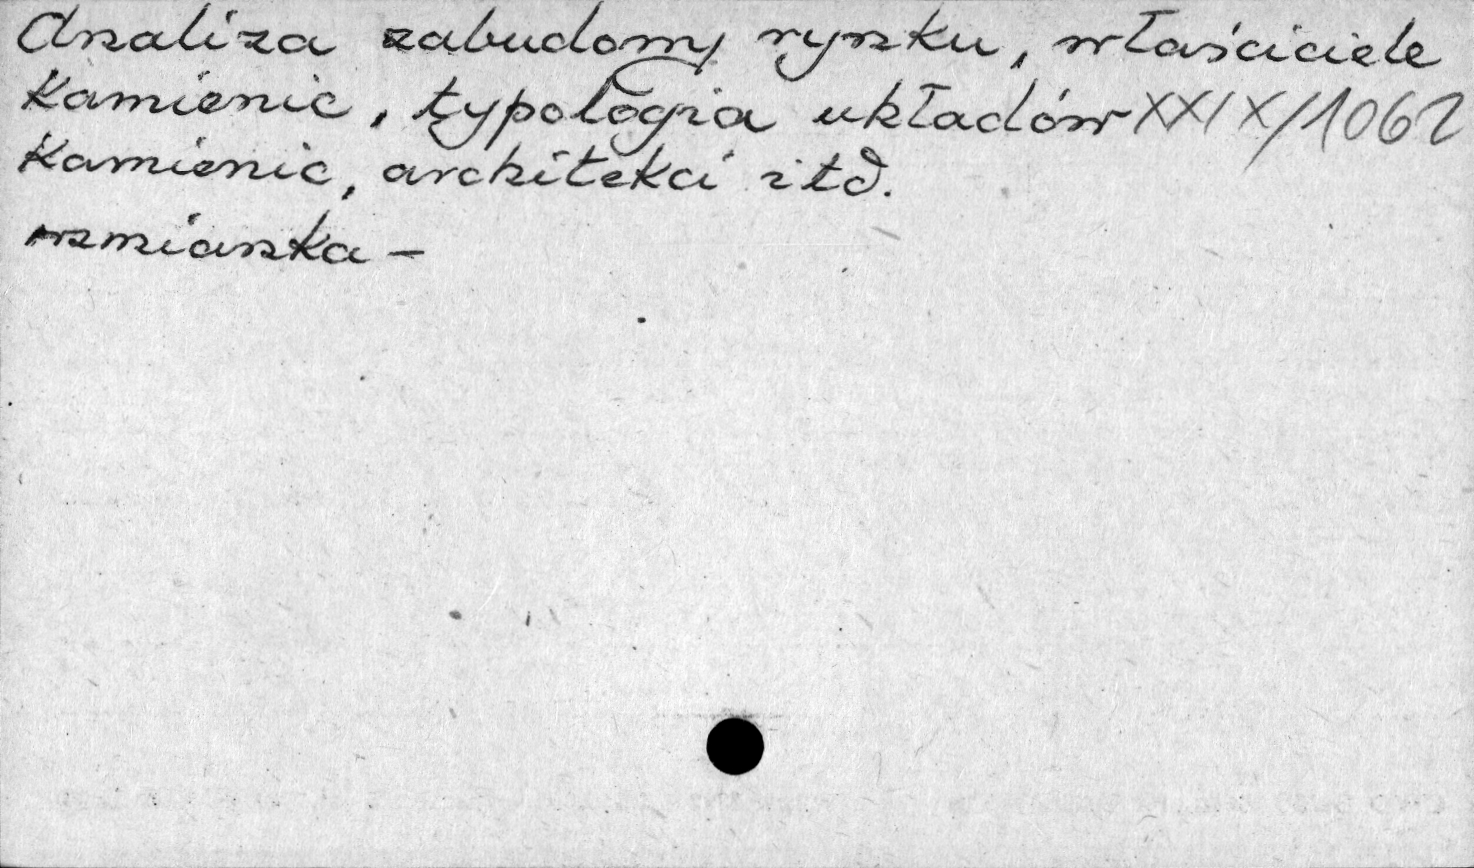 Analiza zabudowy rynku, właściciele
kamienic, typologia układów XXIX/1062
kamienic, architekci itd.
wzmianka –